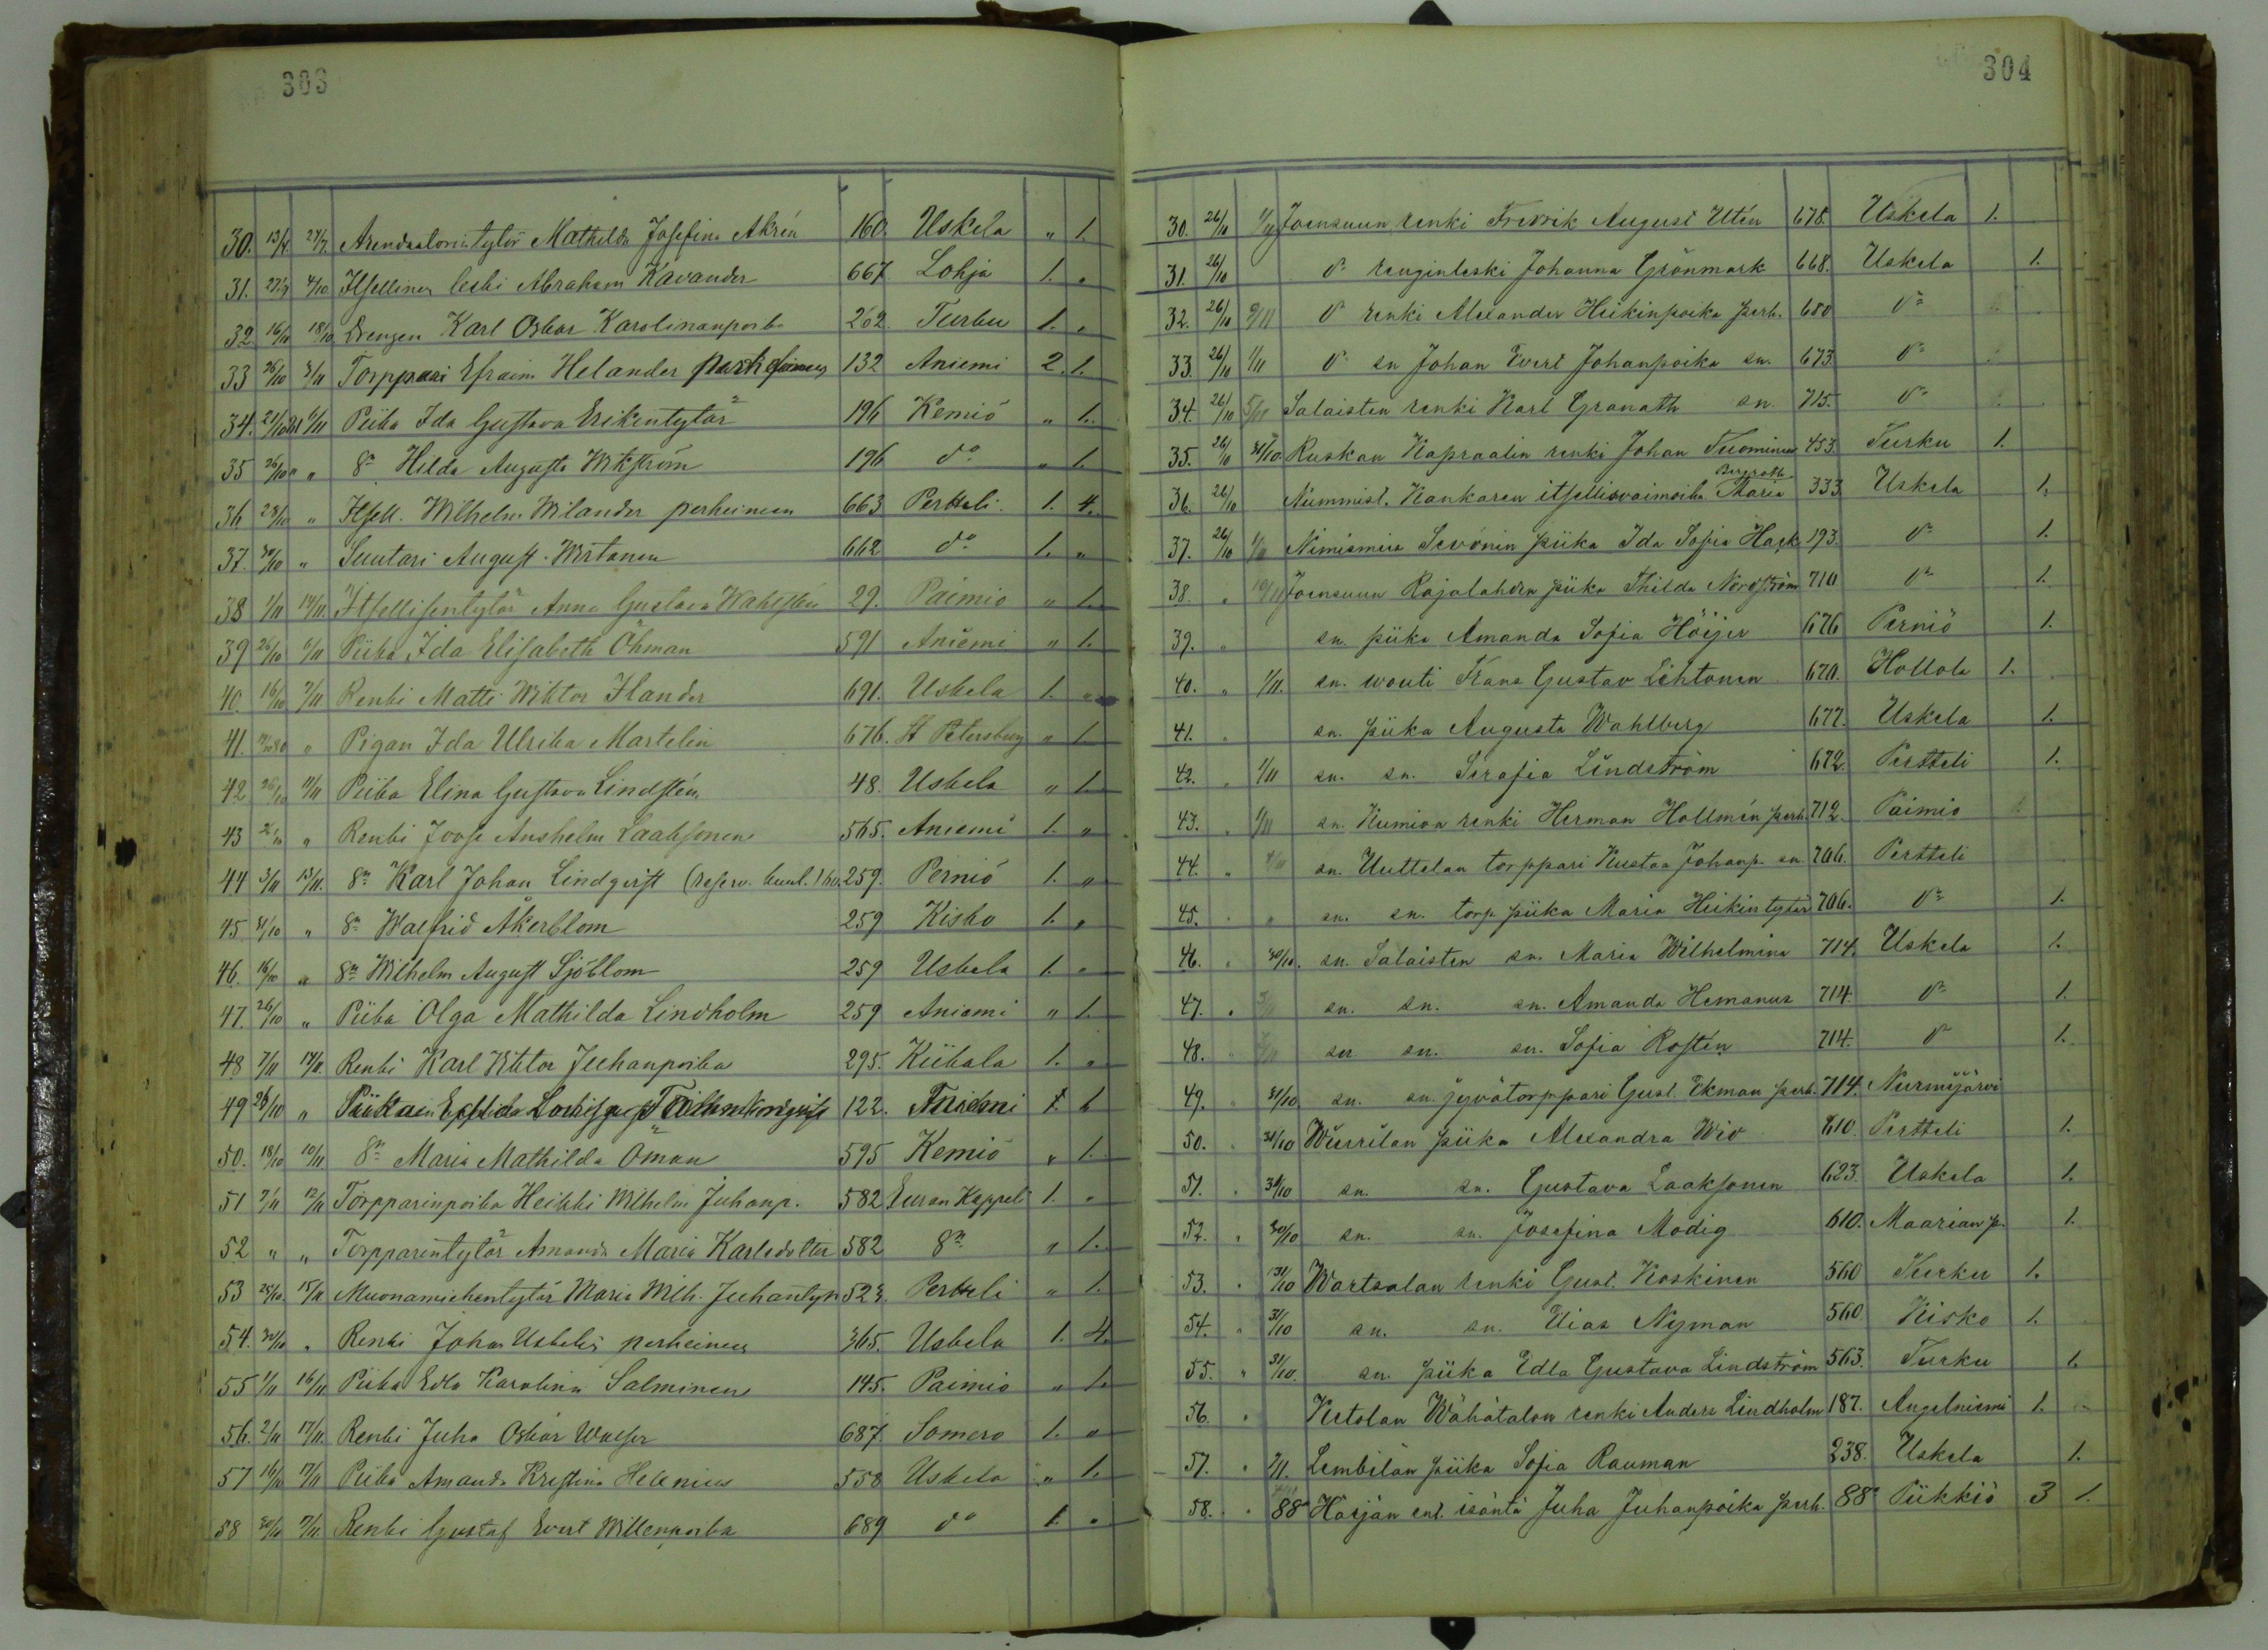 303
30. 13/7. 27/7. Arendaatorintytär Mathilda Josefina Akrén 160. Uskela " 1.
31. 27/9 4/10 Itsellinen leski Abraham Kavander 667 Lohja 1. "
32. 16/10 18/10. Drengen Karl Oskar Karolinanpoika 262. Turku 1. "
33 26/10 3/11 Torppari Efraim Helander perheineen 132 Aniemi 2. 1.
34. 6/11 Piika Ida Gustava Erikintytär 196 Kemiö " 1.
35 26/10 " " Hilda Augusta Wikström 196 do " 1.
36 23/10 " Itsell. Wilhelm Wilander perheineen 663 Pertteli. 1. 4.
37. 30/10 " Suutari August Wirtanen 662 do 1. "
38 1/11 14/11. Itsellisentytär Anna Gustava Wahlstén 29. Paimio " 1.
39 26/10 6/11 Piika Ida Elisabeth Öhman 591 Aniemi " 1.
40. 16/10 7/11 Renki Matti Wiktor Ilander 691. Uskela 1. "
41. " Pigan Ida Ulrika Martelin 676. St Petersburg " 1.
42 26/10 11/11 Piika Elina Gustava Lindstén 48. Uskela " 1.
43 " Renki Joose Anshelm Laaksonen 565. Aniemi 1. "
44 3/11 13/11. Karl Johan Lindqvist (reserv. 259. Perniö 1. "
45. 31/10 " Walfrid Åkerblom 259 Kisko 1. "
46. 16/10 " Wilhelm August Sjöblom 259 Uskela 1. "
47. 26/10 " Piika Olga Mathilda Lindholm 259 Aniemi " 1.
48 7/11 14/11 Renki Karl Wiktor Juhanpoika 295. Kiikala 1. "
49 26/10 " Piika 122. Aniemi 1
50. 18/10 10/11 Maria Mathilda Öman 595 Kemiö " 1.
51 7/11 12/11 Torpparinpoika Heikki Wilhelm Juhanp. 582 Euran Kappeli 1. "
52 " " Torpparintytär Amanda Maria Karlsdotter 582 " 1.
53 15/11 Muonamiehentytär Maria Wilh. Juhantyt. 523. Pertteli " 1.
54. 30/10 " Renki Johan Uskelin perheineen 365. Uskela 1. 4.
55 1/11 16/11 Piika Edla Karolina Salminen 145. Paimio " 1.
56. 2/11 17/11. Renki Juha Oskar 687. Somero 1. "
57 16/10 17/11 Piika Amanda Kristina Helenius 558 Uskela " 1.
58 30/10 17/11 Renki Gustaf Evert Willenpoika 689 do 1. "
304
30. 26/10 1/11 Joensuun renki Fredrik August Utén 678. Uskela 1.
31. 26/10 do renginleski Johanna Grönmark 668. Uskela 1.
32. 26/10 9/11 do renki Alexander Heikinpoika perh. 680 do
33. 26/10 1/11 do sn Johan Evert Johanpoika sn. 673. do
34. 26/10 5/11 Salaisten renki Karl Granath sn. 715. do
35. 26/10 31/10 Ruskan Kapraalin renki Johan Tuominen 453. Turku 1.
36. 26/10 Nummist. Kankaren itsellisvaimoika Maria Bergroth 333. Uskela 1.
37. 26/10 1/11 Nimismies Sevónin piika Ida Sofia Hack 193. do 1.
38. " 10/11 Joensuun Rajalahden piika Thilda Nordström 710 do 1.
39. " sn. piika Amanda Sofia Höijer 676 Perniö 1.
40. " 1/11. sn. wouti Frans Gustav Lehtonen 670. Hollola 1.
41. " sn. piika Augusta Wahlberg 677. Uskela 1.
42. " 1/11 sn. sn. Serafia Lindström 672. Pertteli 1.
43. " 1/11 sn. Kumion renki Herman Hollmén perh. 712. Paimio
44. " 4/11 sn. Uuttelan torppari Kustaa Johanp. sn. 706. Pertteli
45. " " sn. sn. torp. piika Maria Heikintytär 706. do 1.
46. " 30/10. sn. Salaisten sn. Maria Wilhelmina 714. Uskela 1.
47. " sn. sn. sn. Amanda Hemanus 714. do 1.
48. " sn sn. sn. Sofia Rostén 714. do 1.
49. " 31/10 sn. sn. jyvätorppari Gust. Ekman perh. 714. Nurmijärvi
50. " 31/10 Wiurilan piika Alexandra Wid 610. Pertteli 1.
51. " 31/10 sn. sn. Gustava Laaksonen 623. Uskela 1.
52. " 30/10 sn. sn. Josefina Modig 610. Maarian p. 1.
53. " 31/10 Wartsalan renki Gust. Koskinen 560 Turku 1.
54. " 31/10 sn. sn. Elias Nyman 560. Kisko 1.
55. " 31/10. sn. piika Edla Gustava Lindström 563. Turku 1.
56. " Ketolan Wähätalon renki Anders Lindholm 187. Angelniemi 1.
57. " 2/11. Lembilän piika Sofia Rauman 238. Uskela 1.
58. " " 88a Häsjän ent. isäntä Juha Juhanpoika perh. 88a Piikkiö 3 1.